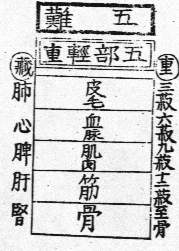 五難
五部輕重
重
三菽六菽九菽十二菽至骨
皮毛
血脈
肌肉
筋
骨
藏
肺心脾肝腎